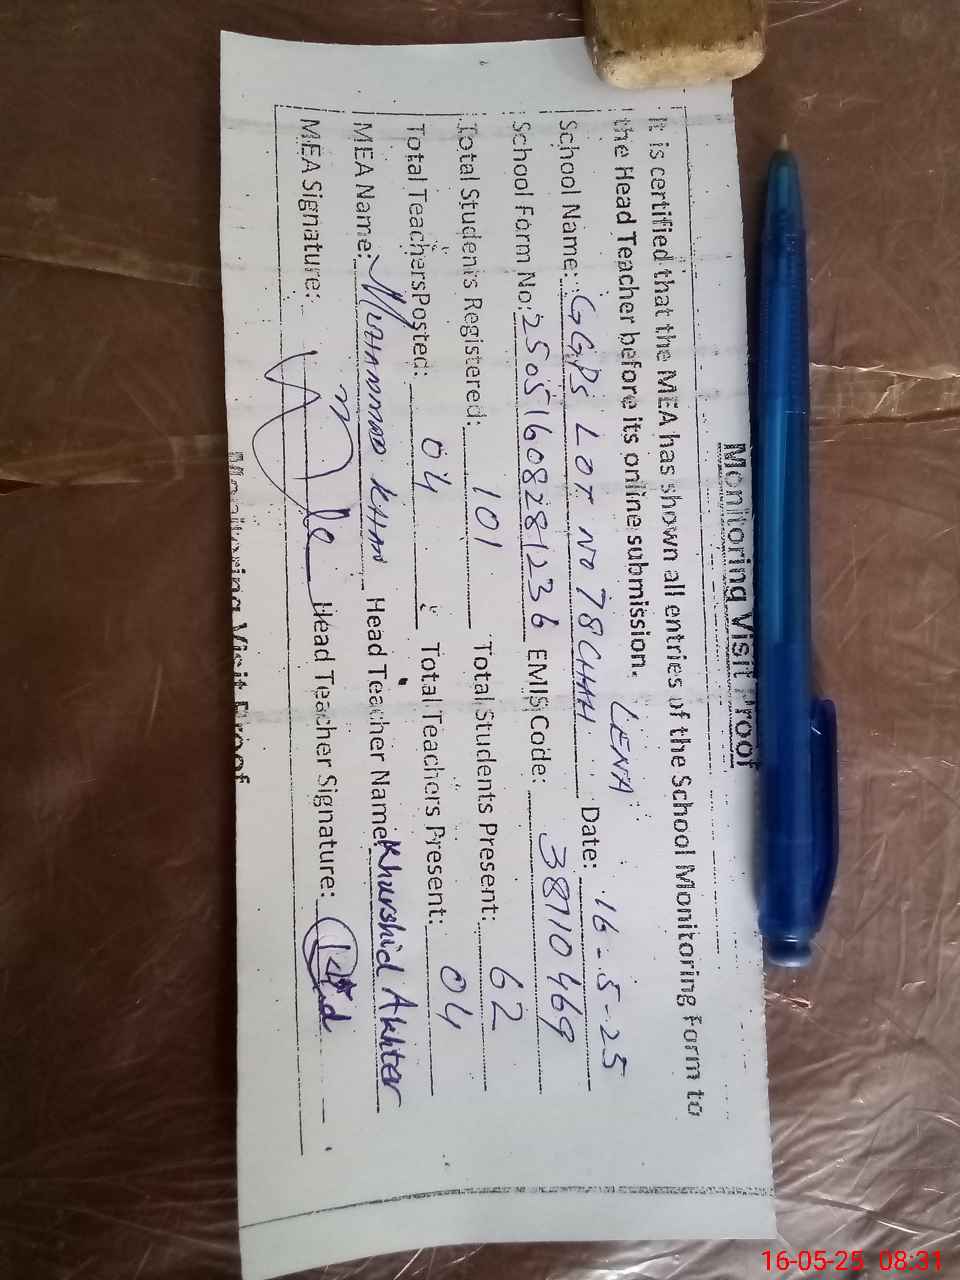 Monitoring Visit Proof
It is certified that the MEA has shown all entries of the School Monitoring Form to
the Head Teacher before its online submission.
LENA
School Name: GGPS LOT NO 78 CHAH Date: 16-5-25
School Form No: 25051608281236 EMIS Code: 38710469
Total Students Registered: 101 Total Students Present: 62
Total Teachers Posted: 04 Total Teachers Present: 04
MEA Name: Muhammad KHAN Head Teacher Name: Khurshid Akhter
MEA Signature: Head Teacher Signature:
Monitoring Visit Proof
16-05-25 08:31